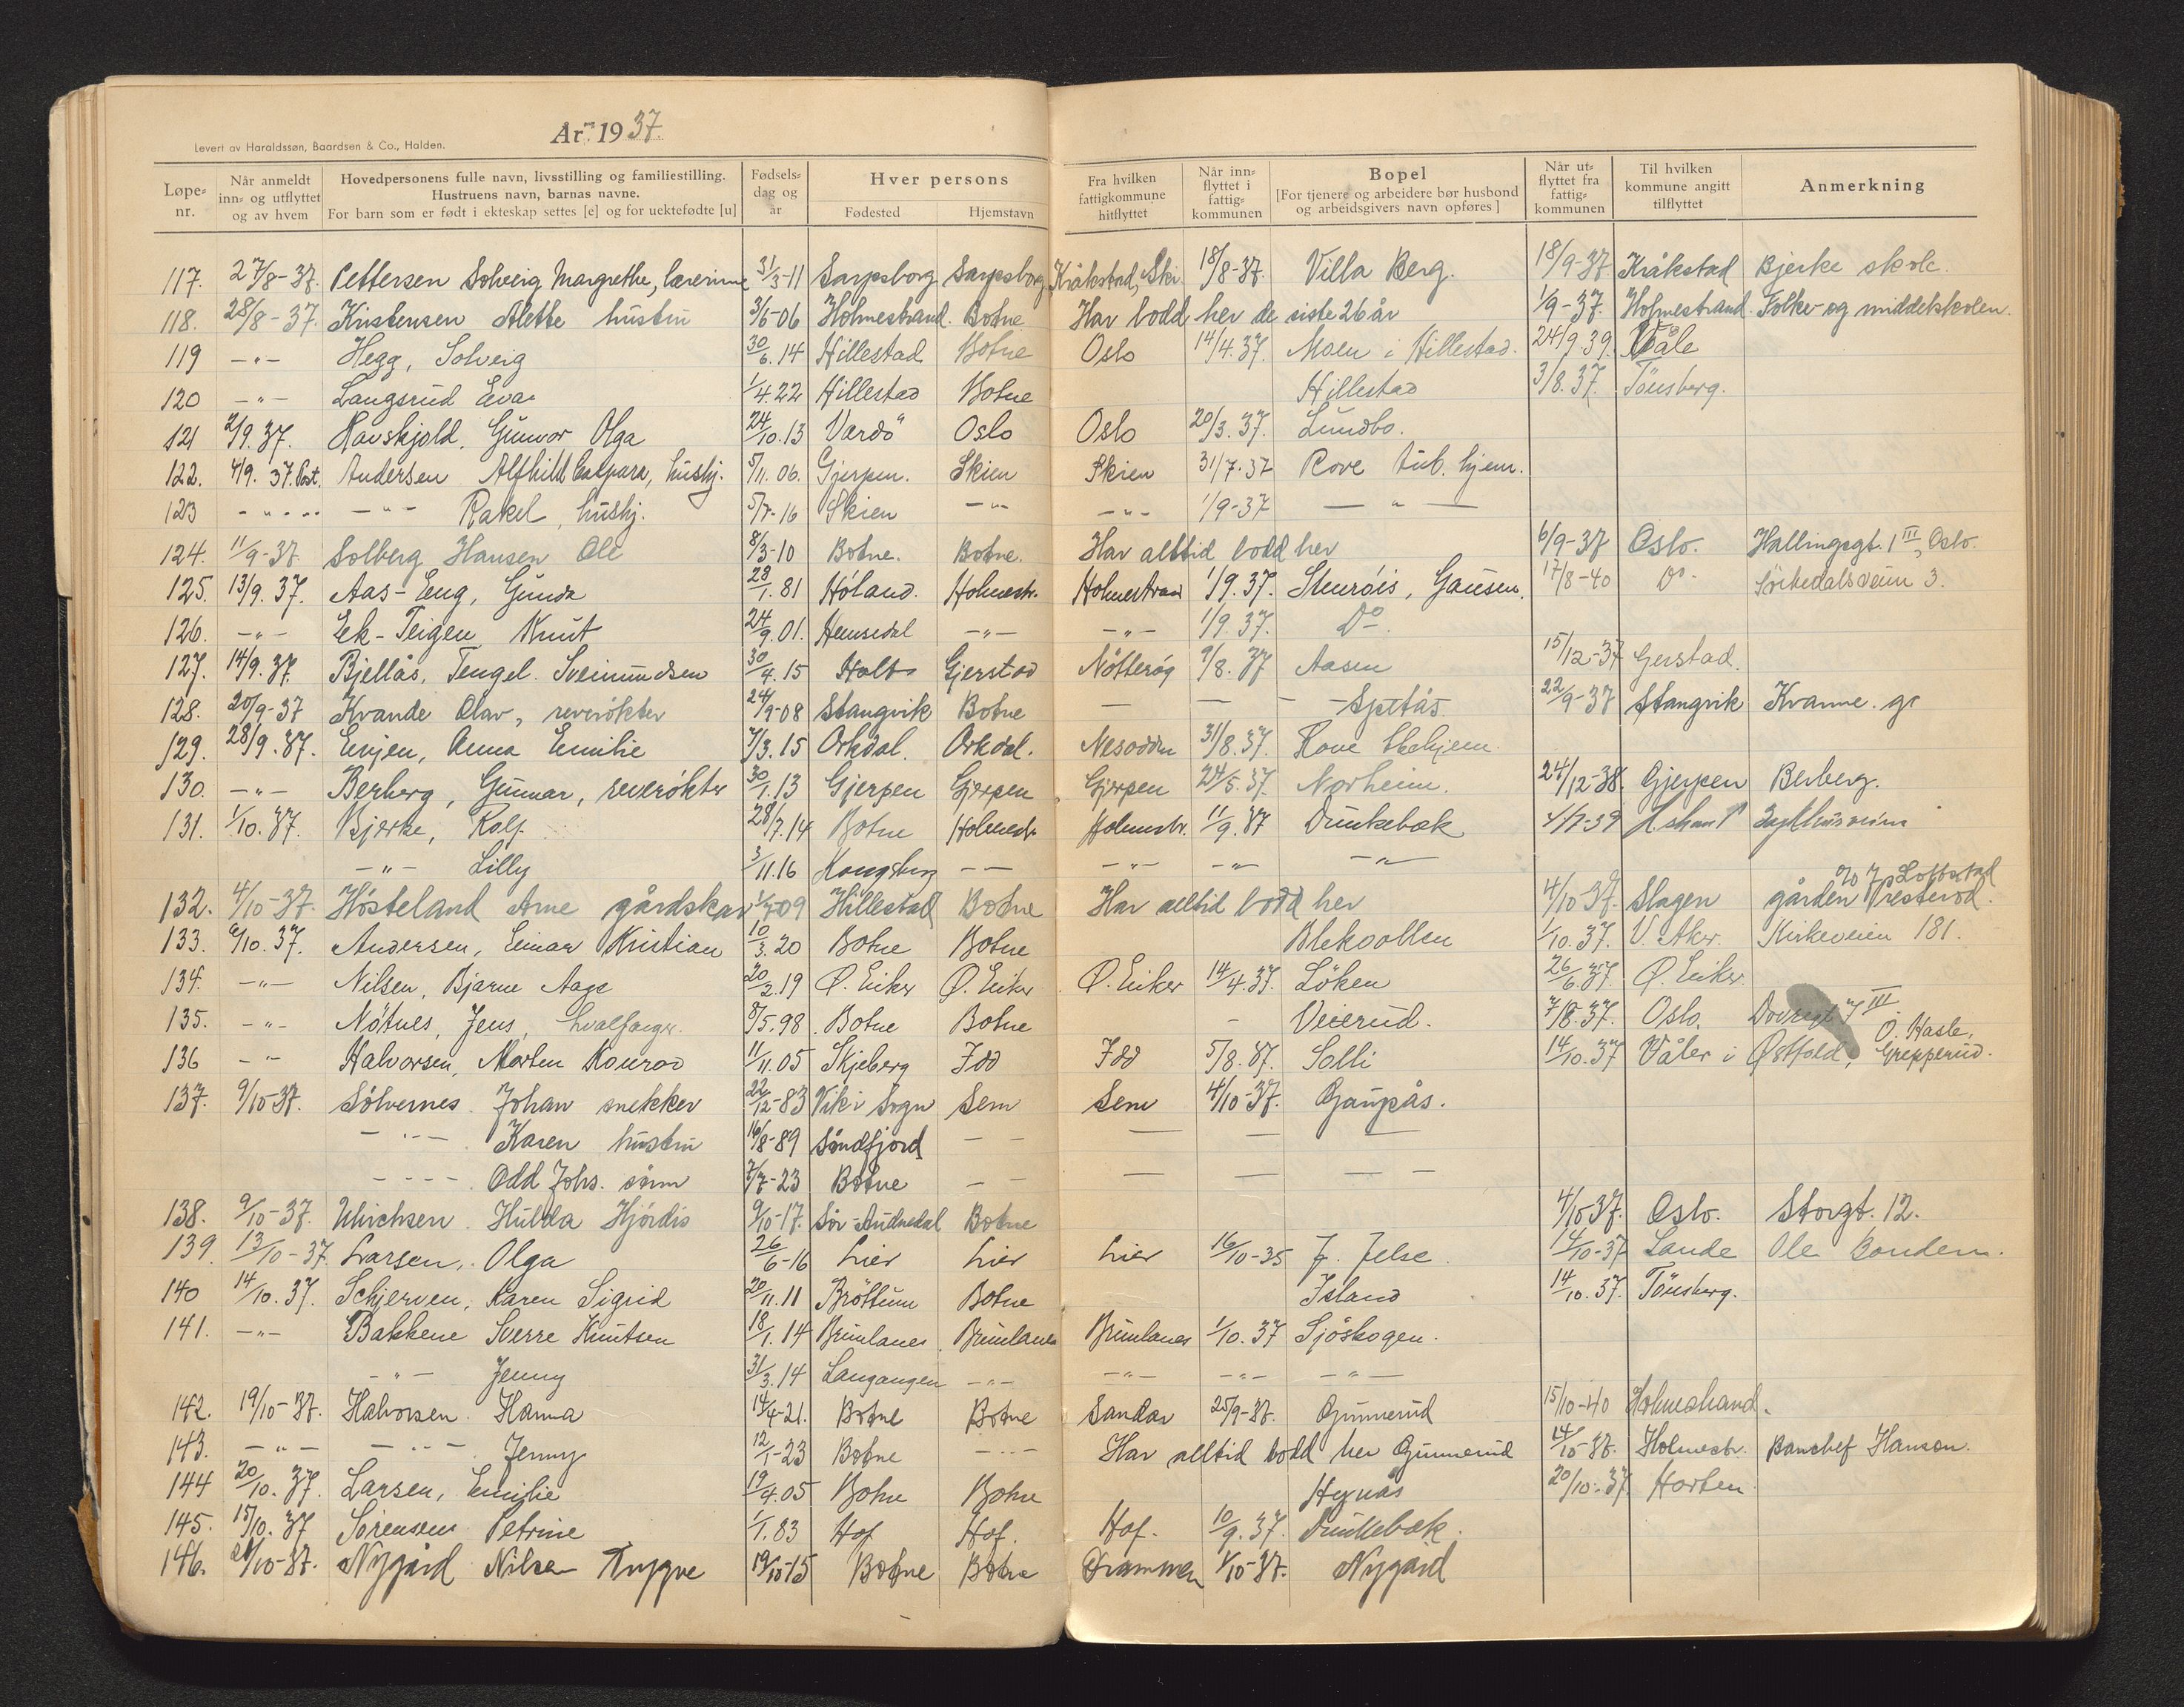 År 1937.
Levert av Haraldssøn, Baardsen & Co., Halden.
Løpe-nr. Når anmeldt inn- og utflyttet og av hvem Hovedpersonens fulle navn, livsstilling og familiestilling. Hustruens navn, barnas navne. For barn som er født i ekteskap settes [e] og for uektefødte [u] Fødsels-dag og år Hver persons Fødested Hjemstavn Fra hvilken fattigkommune hitflyttet Når inn-flyttet i fattig-kommunen Bopel [For tjenere og arbeidere bør husbond og arbeidsgivers navn opføres] Når ut-flyttet fra fattig-kommunen Til hvilken kommune angitt tilflyttet Anmerkning
117. 27/8-37. Pettersen Solveig Margrethe, lærerinne 31/3-11 Sarpsborg Sarpsborg Kråkstad, Ski 18/8-37. Villa Berg. 18/9-37 Kråkstad Bjerke skole.
118. 28/8-37. Kristensen Alette hustru 3/6-06 Holmestrand. Botne Har bodd her de siste 26 år 1/9-37. Holmestrand. Folke- og middelskolen.
119 -"- Hegg, Solveig 30/6.14 Hillestad Botne Oslo 14/4.37. Moen i Hillestad. 24/9.39. Våle
120 -"- Langsrud Eva 1/4.22 Hillestad Botne Hillestad 3/8.37. Tönsberg.
121 2/9.37. Havskjold, Gunvor Olga 24/10.13 Vardö Oslo Oslo 20/3.37. Lundbo.
122. 4/9.37. Post. Andersen Alfhild Caspara, hushj. 5/11.06. Gjerpen. Skien Skien 31/7-37 Rove tub. hjem.
123 -"- -"- -"- Rakel, hushj. 5/7-16 Skien -"- -"- 1/9-37 -"-
124. 11/9-37. Solberg Hansen Ole 8/3-10 Botne. Botne. Har alltid bodd her 6/9-37 Oslo. Hallingsgt. 1 III, Oslo.
125. 13/9.37. Aas-Eng, Gunda 28/1.81 Höland. Holmestr. Holmestrand 1/9.37. Stenröis, Gausen. 17/8-40 Do. Sörkedalsveien 3.
126. -"- Ek-Teigen Knut 24/9.01. Hemsedal -"- -"- 1/9.37. Do.
127. 14/9.37. Bjellås, Tengel. Sveinundsen 30/4.15 Holt Gjerstad Nötteröy 9/8.37 Aasen 15/12-37 Gerstad.
128. 20/9-37 Kvande Olav, reverökter 24/9-08 Stangvik Botne — — - Spetås 22/9-37 Stangvik Kvanne. gr
129. 28/9.37. Evjen, Anna Emilie 7/3.15 Orkdal. Orkdal. Nesodden 31/8.37. Rove
130. -"- Berberg, Gunnar, reverökter 30/1.13 Gjerpen Gjerpen Gjerpen 24/5.37. Norheim. 24/12-38. Gjerpen Berberg.
131. 1/10.37. Bjerke, Rolf 28/7.14 Botne Holmestr. Holmestr. 11/9.37 Dunkebæk
-"- Lilly 3/11.16 Kongsberg — — -"- -"- -"-
132. 4/10-37. Hösteland Arne gårdskar 1/7-09 Hillestad Botne Har alltid bodd her 4/10-37. Slagen gården Presterød.
133. 6/10.37. Andersen, Einar Kristian 10/3.20 Botne Botne Blekvollen 1/10.37. V. Aker. Kirkeveien 181.
134. -"- Nilsen, Bjarne Aage 20/2.19 Ø. Eiker Ø. Eiker Ø. Eiker 14/4.37. Löken 26/6.37. Ø. Eiker.
135. -"- Nötnes, Jens, hvalfanger. 8/5.98. Botne Botne - Veierud. 7/8.37. Oslo. Dovregt 7 III
136 -"- Halvorsen, Morten Konrad 11/11.05 Skjeberg Idd Idd 5/8.37. Solli 14/10.37 Våler i Østfold, Ö. Hasle, Grepperud.
137. 9/10-37. Sölvernes. Johan snekker 22/12-83 Vik i Sogn Sem Sem 4/10-37. Gaupås.
- " - Karen hustru 16/8-89 Söndfjord — — — — —
- - - - Odd Johs. sönn 7/7-23 Botne — — — — — —
138. 9/10-37. Ulrichsen. Hulda Hjördis 9/10-17. Sör-Audnedal Botne 4/10-37. Oslo. Storgt. 12.
139. 13/10-37. Larsen, Olga 26/6-16 Lier Lier Lier 16/10-35 J. Jelse. 14/10-37 Sande Ole Bonden.
140 14/10.37. Schjerven, Karen Sigrid 20/11.11 Bröttum Botne Island 14/10.37. Tönsberg.
141. -"- Bakkene Sverre Knutsen 18/1.14 Brunlanes Brunlanes Brunlanes 1/10.37 Sjöskogen.
-"- Jenny 31/3.14 Langangen -"- -"- -"- -"-
142. 19/10-37. Halvorsen. Hanna 14/4-21. Botne Botne Sandar 25/9-37. Gunnerud 15/10-40 Holmestrand.
143. -"- -"- Jenny 12/1-23 Botne -"- Har alltid bodd her Gunnerud 14/10-37. Holmestr. Banchef Hanson.
144 20/10.37. Larsen, Emilie 19/4.05 Botne Botne Hynås 20/10-37 Horten
145. 15/10.37 Sörensen Petrine 1/1.83 Hof Hof. Hof. 10/9.37. Dunkebæk.
146. 21/10-37. Nygård Nilsen Trygve 19/10-15 Botne Botne Drammen 1/10-37. Nygård